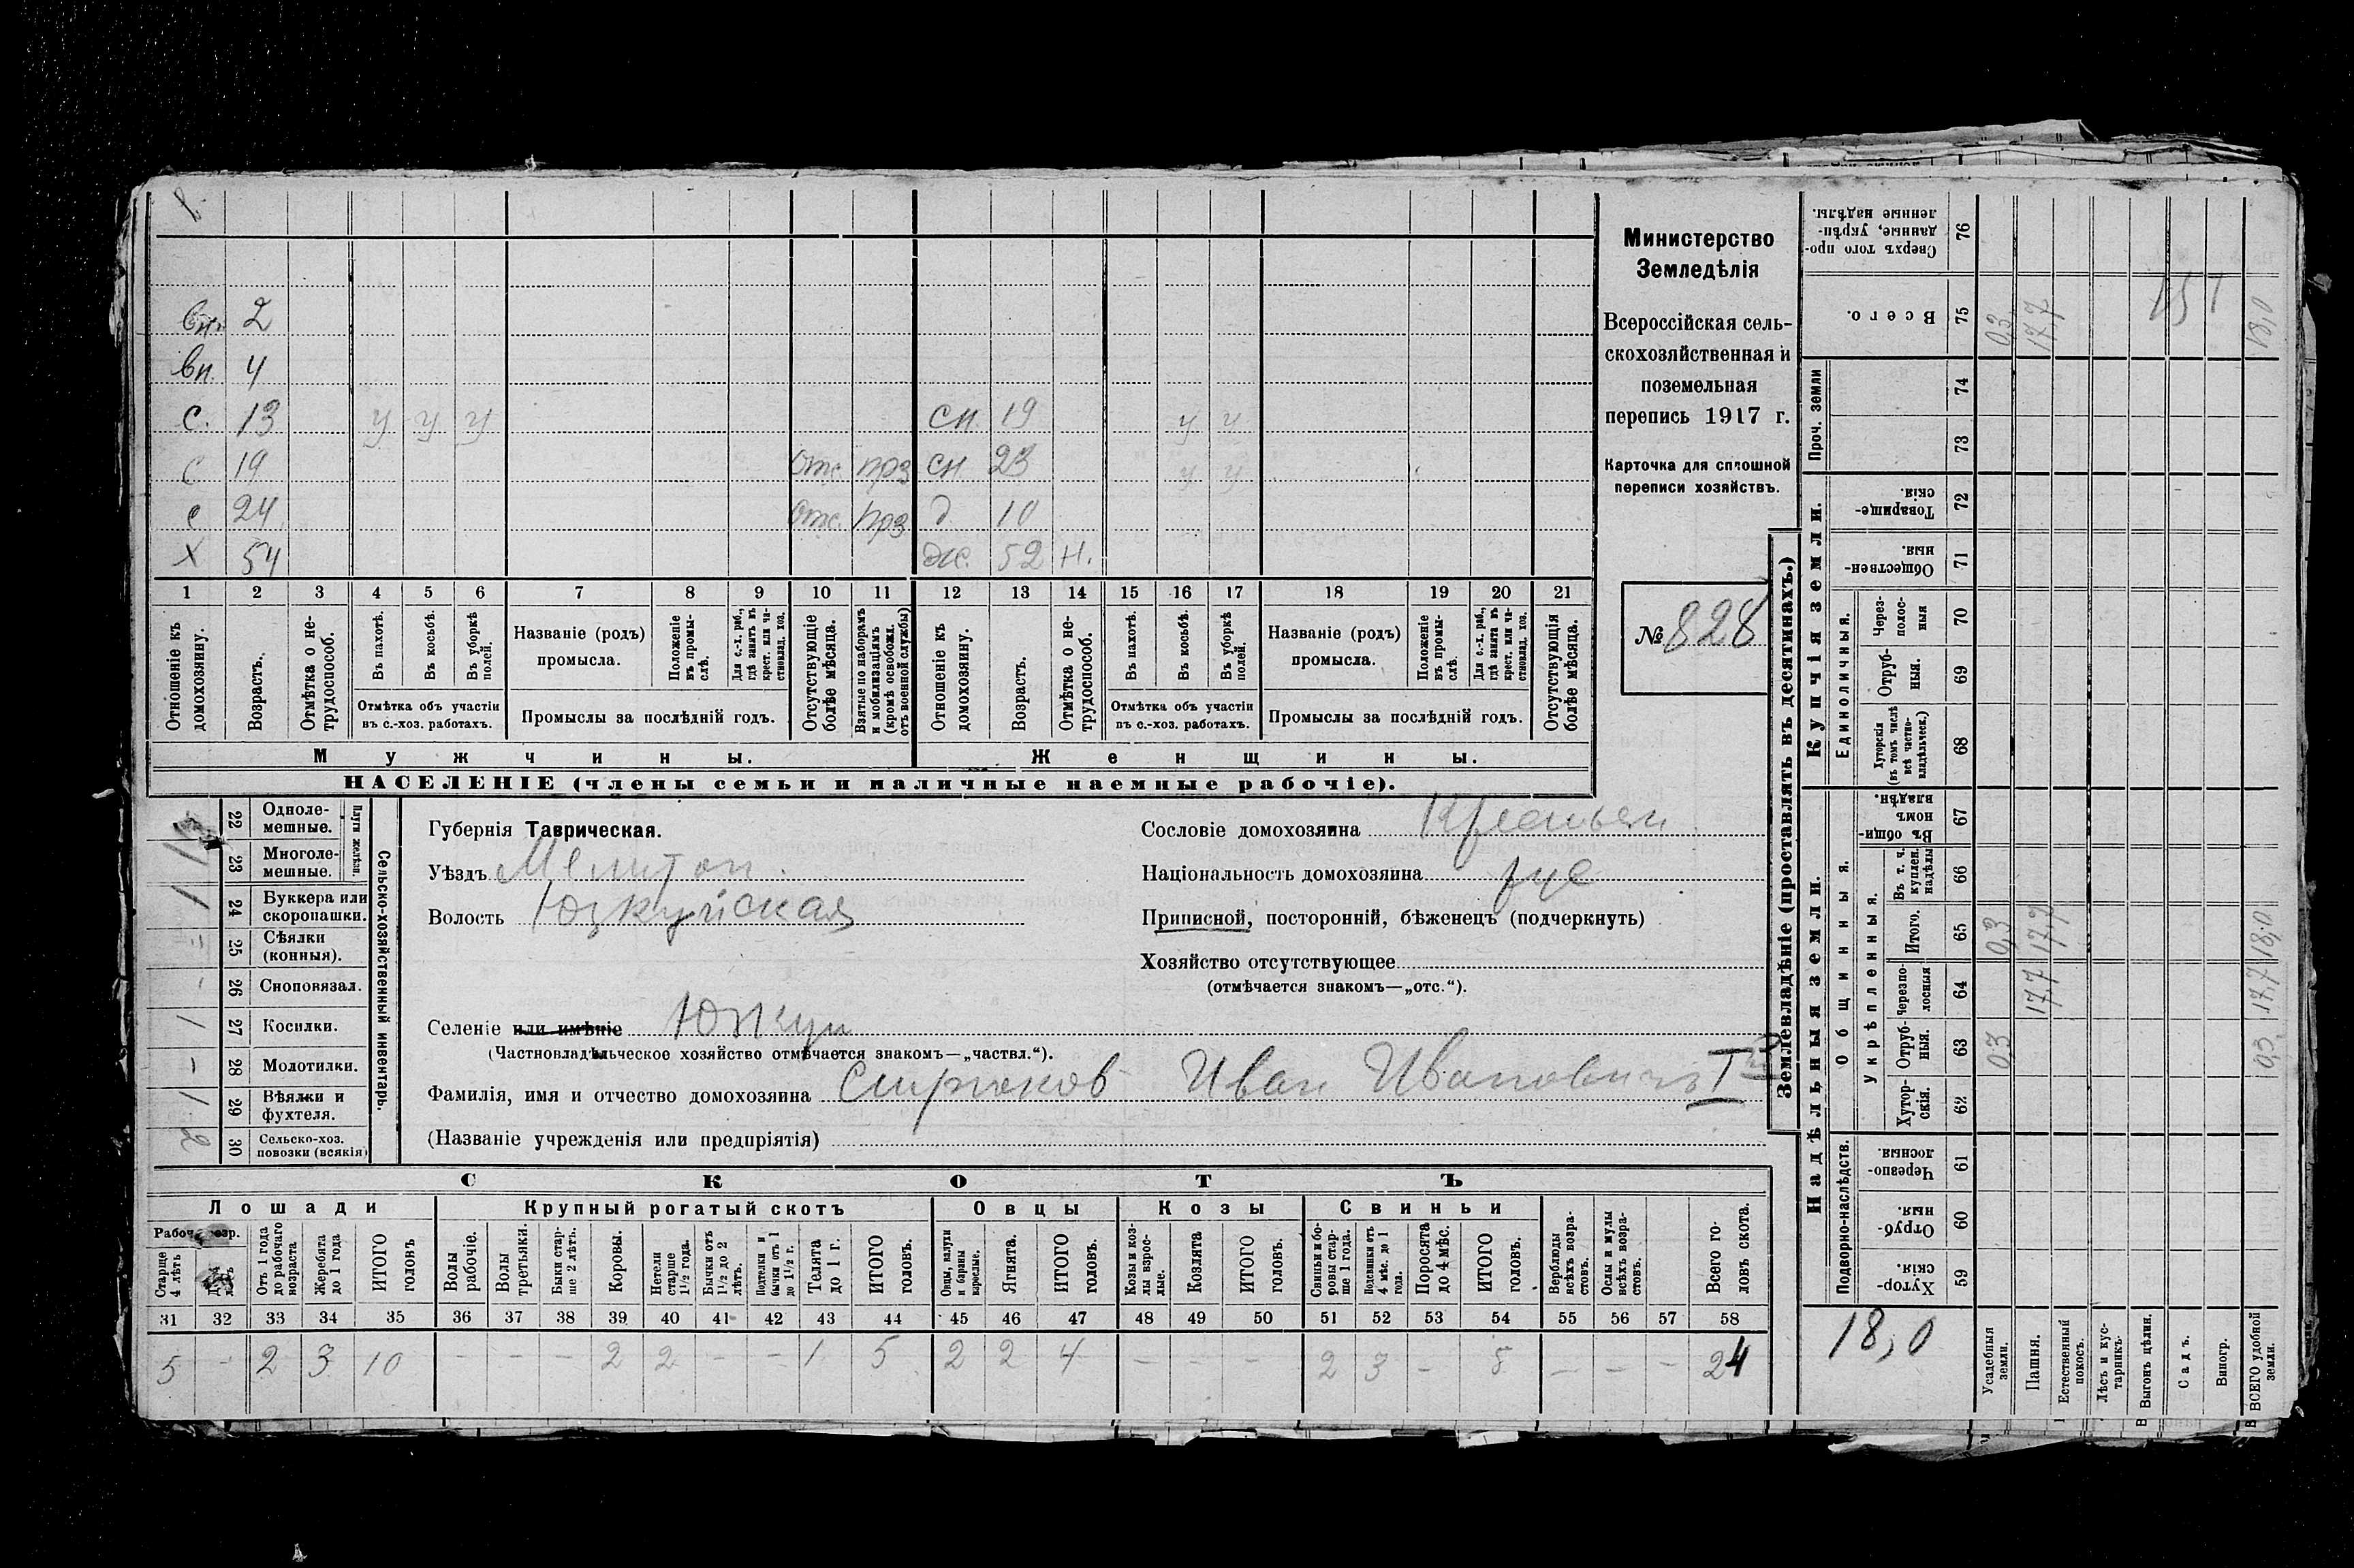 вн. 2
вн. 4
с. 13 у у у сн. 19 у у
с 19 отс. прз сн. 23 у у
с 24 отс. прз д 10
х 54 же. 52 н.
1 2 3 4 5 6 7 8 9 10 11 12 13 14 15 16 17 18 19 20 21
Отношеніе къ домохозяину.
Возрастъ.
Отмѣтка о не-
трудоспособ.
Въ пахотѣ.
Въ косьбѣ.
Въ уборкѣ полей.
Отмѣтка объ участіи
въ с.-хоз. работахъ.
Названіе (родъ)
промысла.
Положеніе въ промы-
слѣ.
Для с.-х. раб.,
гдѣ занятъ въ
крест. или ча-
стновлад. хоз.
Промыслы за послѣдній годъ.
Отсутствующіе
болѣе мѣсяца.
Взятые по наборамъ
и мобилизаціямъ
(кромѣ освобожд.
отъ военной службы)
Отношеніе къ
домохозяину.
Возрастъ.
Отмѣтка о не-
трудоспособ.
Въ пахотѣ.
Въ косьбѣ.
Въ уборкѣ
полей.
Отмѣтка объ участіи
въ с.-хоз. работахъ.
Названіе (родъ)
промысла.
Положеніе
въ промы-
слѣ.
Для с.-х. раб.,
гдѣ занята въ
крест. или ча-
стновлад. хоз.
Промыслы за послѣдній годъ.
Отсутствующія
болѣе мѣсяца.
Мужчины. Женщины.
НАСЕЛЕНІЕ (члены семьи и наличные наемные рабочіе).
Министерство
Земледѣлія
Всероссійская сель-
скохозяйственная и
поземельная
перепись 1917 г.
Карточка для сплошной
переписи хозяйствъ.
№ 828
22 Одноле-
мешные.
23 Многоле-
мешные.
Плуги желѣзн.
1 24 Буккера или
скоропашки.
25 Сѣялки
(конныя).
- 26 Сноповязал.
1 27 Косилки.
- 28 Молотилки.
1 29 Вѣялки и
фухтеля.
2 30 Сельско-хоз.
повозки (всякія)
Сельско-хозяйственный инвентарь.
Губернія Таврическая.
Уѣздъ Мелитоп.
Волость Юзкуйская
Селеніе или имѣніе Юзкуи
(Частновладѣльческое хозяйство отмѣчается знакомъ—„частвл.“).
Фамилія, имя и отчество домохозяина Смрюков Иван Иванович I
(Названіе учрежденія или предпріятія)
Сословіе домохозяина Крестьян
Національность домохозяина рус
Приписной, посторонній, бѣженецъ (подчеркнуть)
Хозяйство отсутствующее
(отмѣчается знакомъ—„отс.“).
СКОТЪ
Лошади Крупный рогатый скотъ Овцы Козы Свиньи
Старше
4 лѣтъ
Отъ 1 года
до рабочаго
возраста
Жеребята
до 1 года
ИТОГО
головъ
Волы
рабочіе.
Волы
третьяки.
Быки стар-
ше 2 лѣтъ.
Коровы.
Нетели
старше
1½ года.
Бычки отъ
1½ до 2
лѣтъ.
Подтелки и
бычки отъ 1
до 1½ г.
Телята
до 1 г.
ИТОГО
головъ.
Овцы, валухи
и бараны
взрослые.
Ягнята.
ИТОГО
головъ.
Козы и коз-
лы взрос-
лые.
Козлята
ИТОГО
головъ.
Свиньи и бо-
ровы стар-
ше 1 года.
Подсвинки отъ
4 мѣс. до 1
года.
Поросята
до 4 мѣс.
ИТОГО
головъ.
Верблюды
всѣхъ возра-
стовъ.
Ослы и мулы
всѣхъ возра-
стовъ.
Всего го-
ловъ скота.
31 32 33 34 35 36 37 38 39 40 41 42 43 44 45 46 47 48 49 50 51 52 53 54 55 56 57 58
5 - 2 3 10 - - - 2 2 - - 1 5 2 2 4 - - - 2 3 - 5 - - - 24
Землевладѣніе (проставлять въ десятинахъ.)
Надѣльныя земли. Купчія земли.
Подворно-наслѣдств. Общинныя. Укрѣпленныя. Единоличныя. Проч. земли
Хутор-
скія. 59
Отруб-
ныя. 60
Черезпо-
лосныя. 61
Хутор-
скія. 62
Отруб-
ныя. 63
Черезпо-
лосныя 64
Итого. 65
Въ т. ч.
куплен.
надѣлы 66
Въ общин-
номъ
владѣн. 67
Хуторскія
(въ томъ числѣ
всѣ частно-
владѣльческ.) 68
Отруб-
ныя. 69
Через-
полос-
ныя 70
Обществен-
ныя. 71
Товарище-
скія. 72
73
74
Всего. 75
Сверхъ того про-
данные, укрѣп-
ленные надѣлы. 76
18,0
Усадебныя
земли. 0,3 0,3 0,3
Пашня. 17,7 17,7 17,7
Естественный
покосъ.
Лѣсъ и кус-
тарникъ.
Выгонъ цѣлин.
Садъ.
Виногр.
ВСЕГО удобной
земли. 0,3 17,7 18,0 18,0